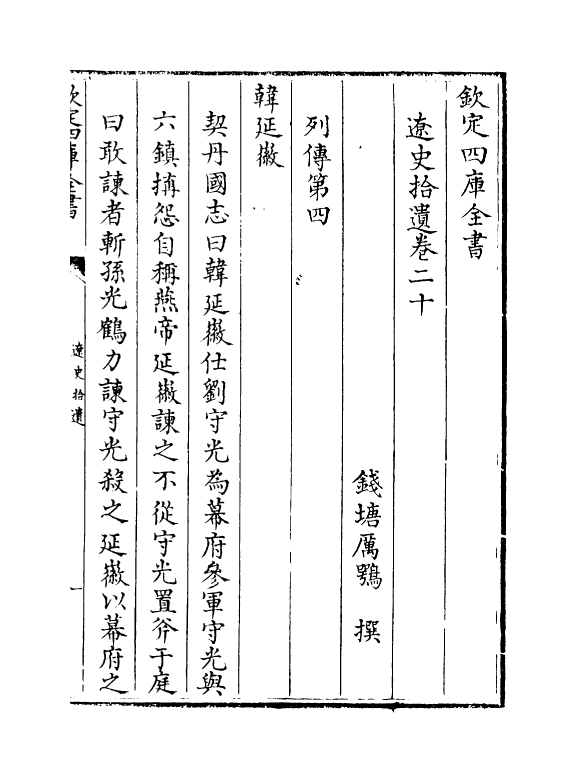 欽定四庫全書
遼史拾遺卷二十
錢塘厲鶚 撰
列傳第四
韓延徽
契丹國志曰韓延徽仕劉守光為幕府參軍守光與
六鎮搆怨自稱燕帝延徽諫之不從守光置斧于庭
曰敢諫者斬孫光鶴力諫守光殺之延徽以幕府之
欽定四庫全書
遼史拾遺
一